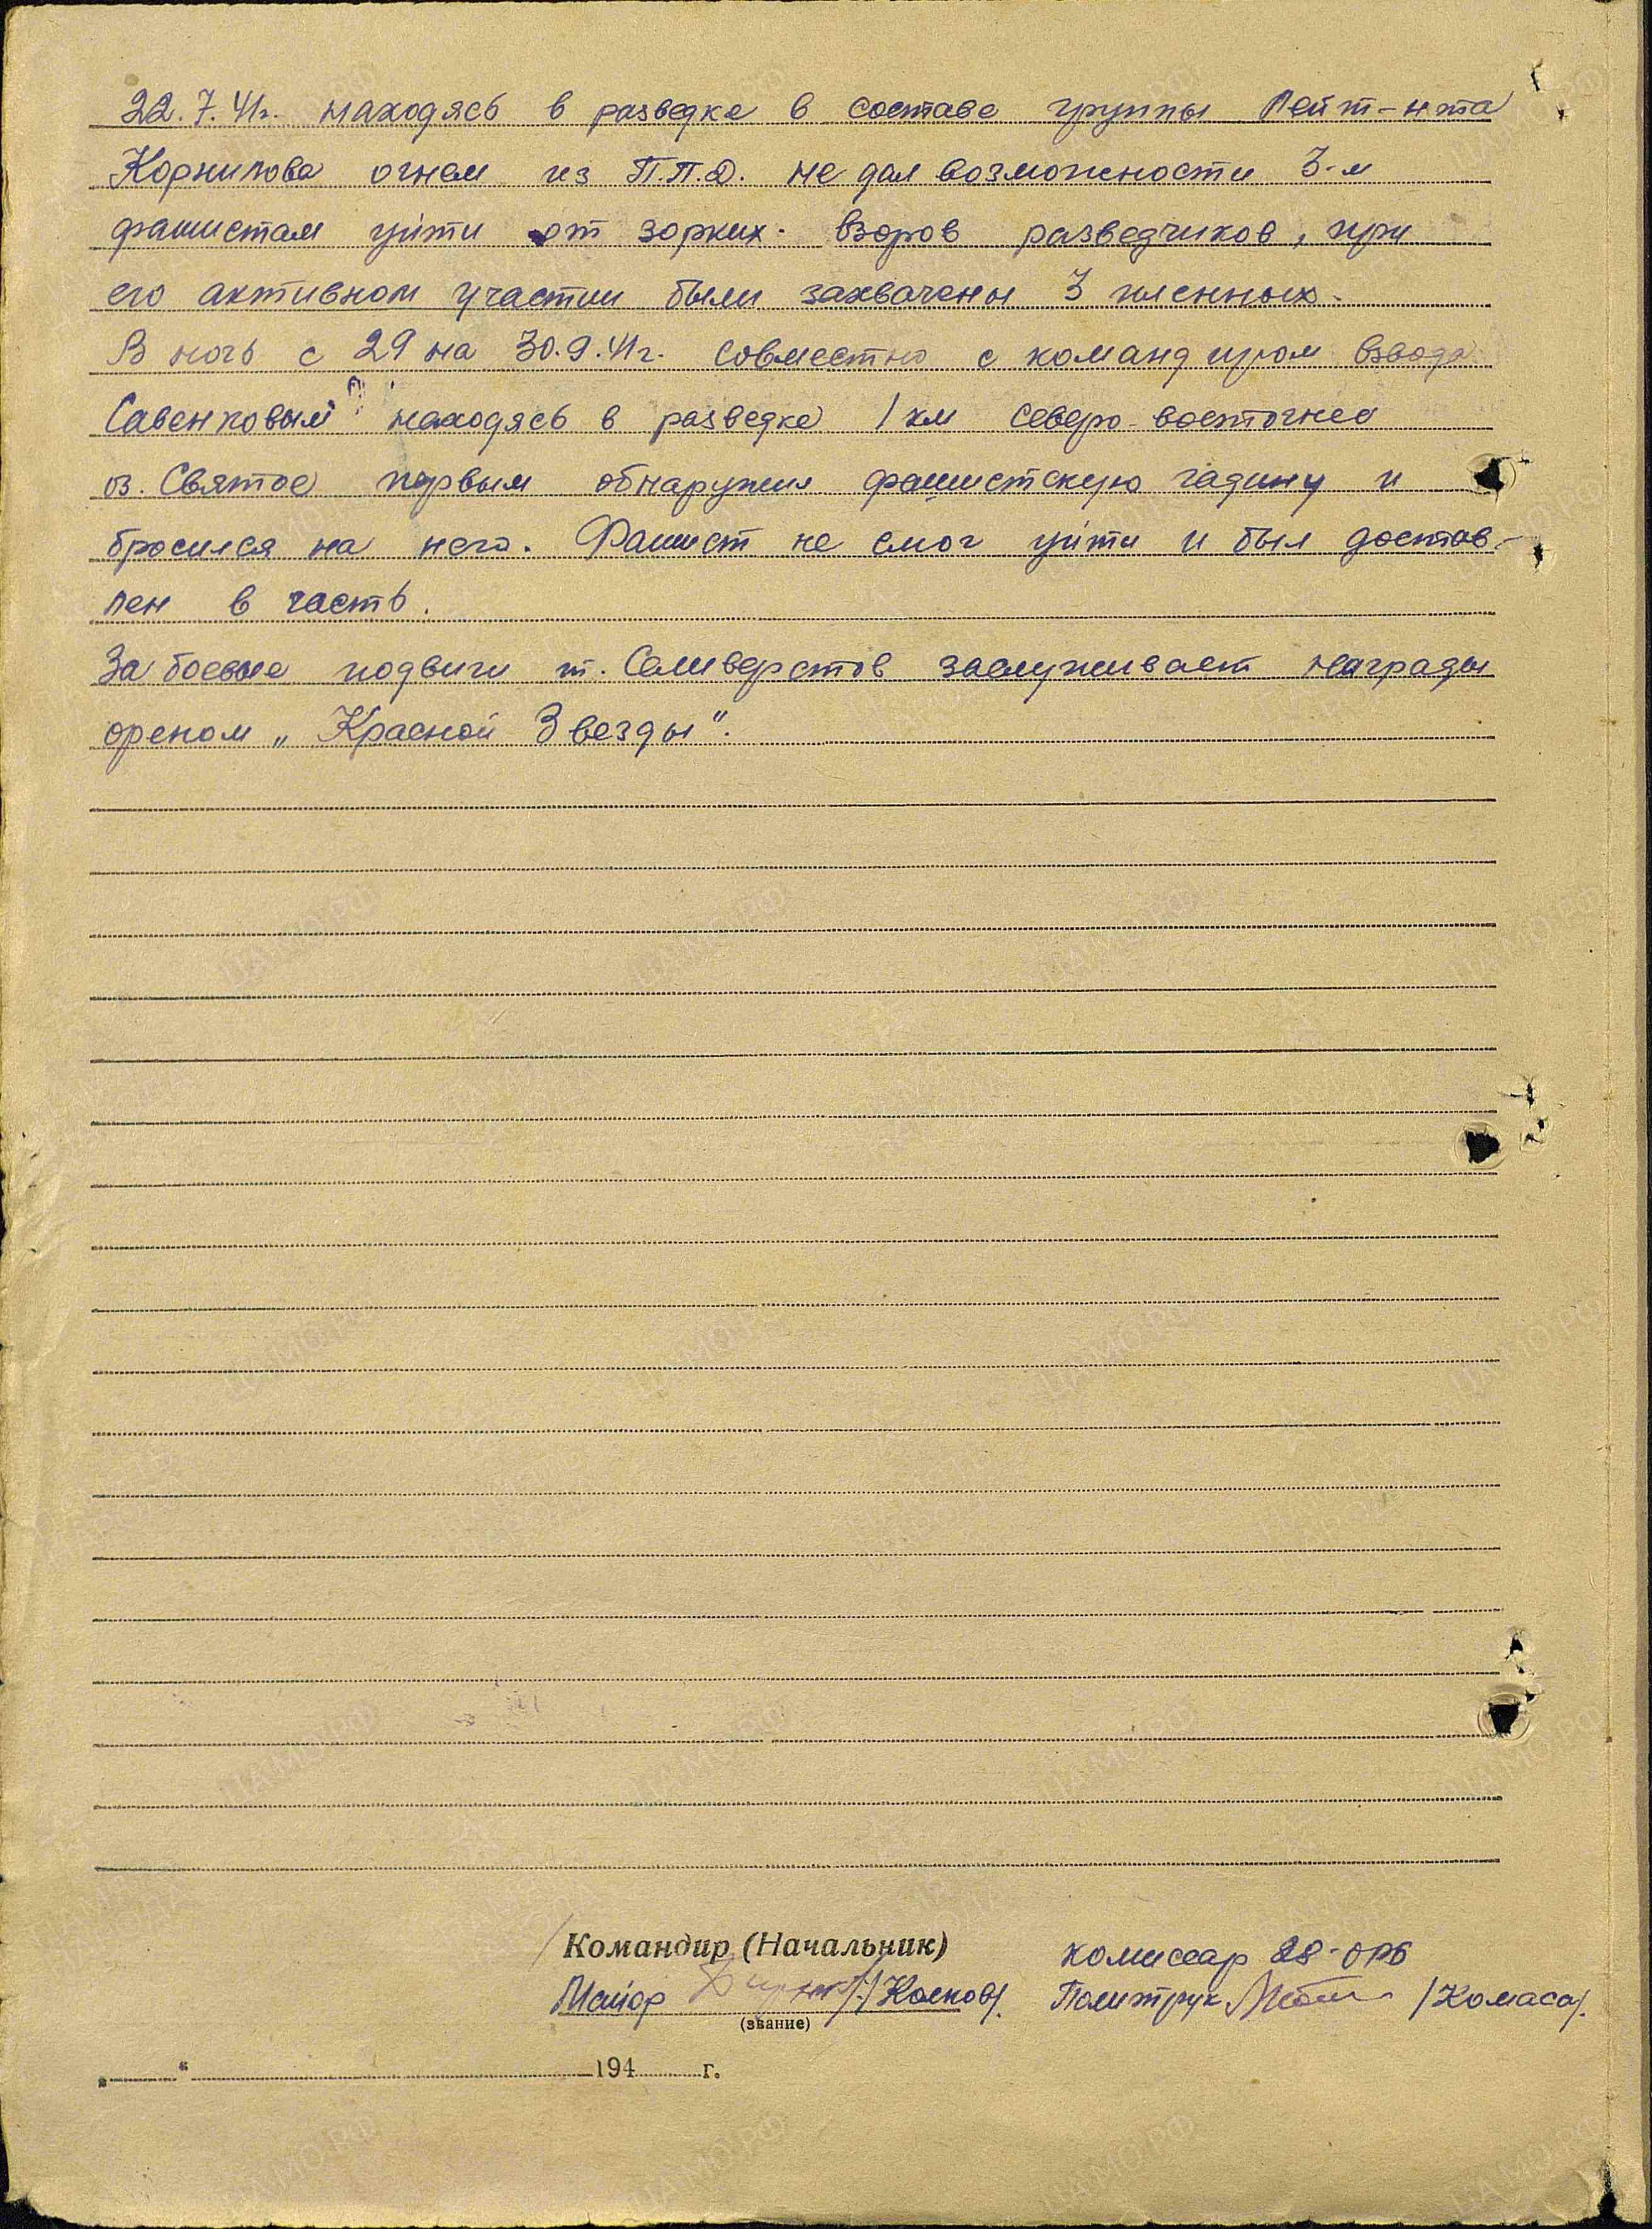 22.7.41г. находясь в разведке в составе группы Лейт-нта
Корнилова огнем из П.П.Д. не дал возможности 3-м
фашистам уйти от зорких взоров разведчиков, при
его активном участии были захвачены 3 пленных.
В ночь с 29 на 30.9.41г. совместно с командиром взвода
Савенковым находясь в разведке 1 км северо-восточнео
оз. Святое первым обнаружил фашистскую гадину и
бросился на него. Фашист не смог уйти и был достав-
лен в часть.
За боевые подвиги т. Селиверстов заслуживает награды
ореном „Красной Звезды".
Командир (Начальник) комиссар 28-ОРБ
Майор /Коснов/. Политрук /Комаса/.
(звание)
„ “ 194 г.
ЦАМО.РФ